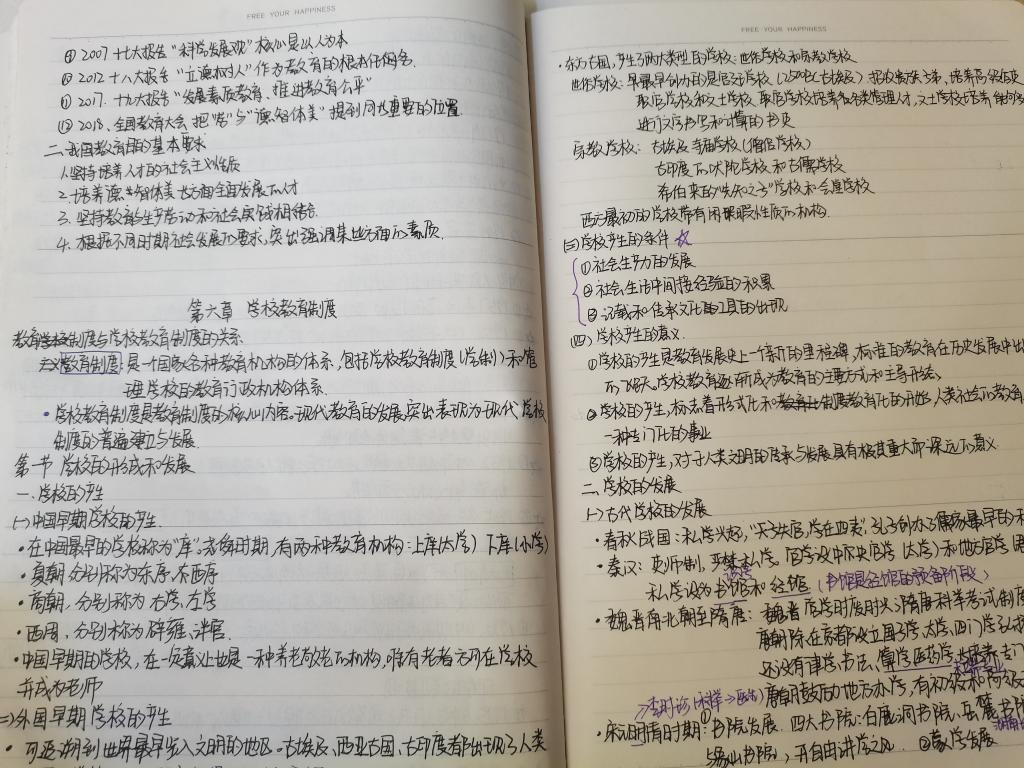 FREE YOUR HAPPINESS
⑨ 2007 十七大报告“科学发展观”核心是以人为本
⑩ 2012 十八大报告“立德树人”作为教育的根本任务.
⑪ 2017. 十九大报告“发展素质教育、推进教育公平”
⑫ 2018、全国教育大会把“劳”与“德智体美”提到同为重要的位置
二、我国教育目的基本要求
1.坚持培养人才的社会主义性质
2.培养德智体美 方面全面发展的人才
3. 坚持教育与生产劳动和社会实践相结合.
4. 根据不同时期社会发展的要求,突出强调某些方面的素质.
第六章 学校教育制度
教育制度与学校教育制度的关系.
教育制度:是一个国家各种教育机构的体系,包括学校教育制度(学制)和管
理学校的教育行政机构体系.
·学校教育制度是教育制度的核心内容.现代教育的发展突出表现为现代学校
制度的普遍建立与发展.
第一节 学校的形成和发展
一.学校的产生
(一)中国早期学校的产生.
·在中国最早的学校称为“庠”.虞舜时期,有两种教育机构:上庠(大学) 下庠(小学)
·夏朝,分别称为东序、西序
·商朝,分别称为右学、左学
·西周,分别称为辟雍、泮宫.
·中国早期的学校,在一定意义上也是一种养老敬老的机构,唯有老者方可在学校
并成为老师
(二)外国早期学校的产生
·可追溯到世界最早步入文明的地区.古埃及、西亚古国、古印度都出现了人类
FREE YOUR HAPPINESS
·东方古国,产生了两大类型的学校:世俗学校和宗教学校
世俗学校:早最早创办的是宫廷学校(2500BC古埃及)
职官学校和文士学校.职官学校培养各类管理人才,文士学校培养能
进行文字书写和计算的书吏
宗教学校:古埃及寺庙学校(僧侣学校)
古印度的吠陀学校和古儒学校
希伯来的“先知之子”学校和会堂学校
西方最初的学校带有闲暇性质的机构.
(三)学校产生的条件
①社会生产力的发展
②社会生活中间接经验的积累
③记载和传承文化的工具的出现
(四)学校产生的意义.
①学校的产生是教育发展史上一个新的里程碑,标准的教育在历史发展中出
的飞跃,学校教育逐渐成为教育的主要方式和主导形态.
②学校的产生,标志着形式化和制度教育化的开始,人类社会的教育
一种专门化的事业
③学校的产生,对于人类文明的传承与发展具有极其重大而深远的意义.
二、学校的发展
(一)古代学校的发展
·春秋战国:私学兴起,“天子失官,学在四夷”,孔子创办了 最早的私
·秦汉:吏师制,严禁私学,官学设中央官学(太学)和地方官学
私学设为书馆和经馆(书馆是经馆的预备阶段)
·魏晋南北朝至隋唐:魏晋官学时废时兴;隋唐科举考试制度
唐朝除在京都设立国子学、太学、四门学
还设有律学、书法、算学、医药学
唐朝鼓励地方办学,有初级和高级
·宋元明清时期:①书院发展.四大书院:白鹿洞书院、岳麓书院
书院,开自由讲学之风.②蒙学发展